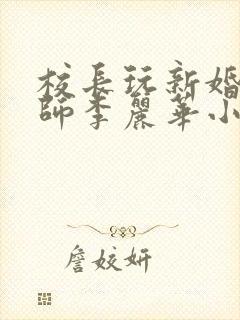 校長玩新婚
師李麗華小
詹姣妍